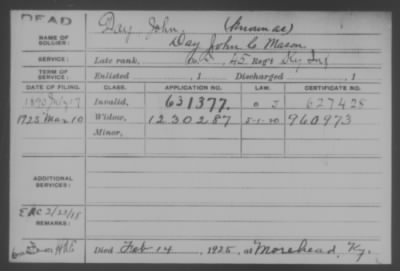 DEAD
NAME OF SOLDIER: Day, John, (Known as)
Day John C. Mason
SERVICE: Late rank, Pvt, 45 Reg't Ky Inf
TERM OF SERVICE: Enlisted , 1 Discharged , 1
DATE OF FILING. CLASS. APPLICATION NO. LAW. CERTIFICATE NO.
1890 July 17 Invalid, 631377. 627425
1925 Mar 10 Widow, 1230287 5-1-20 960973
Minor,
ADDITIONAL SERVICES:
2/23/18
REMARKS:
Died Feb 14, 1925, at Morehead, Ky.